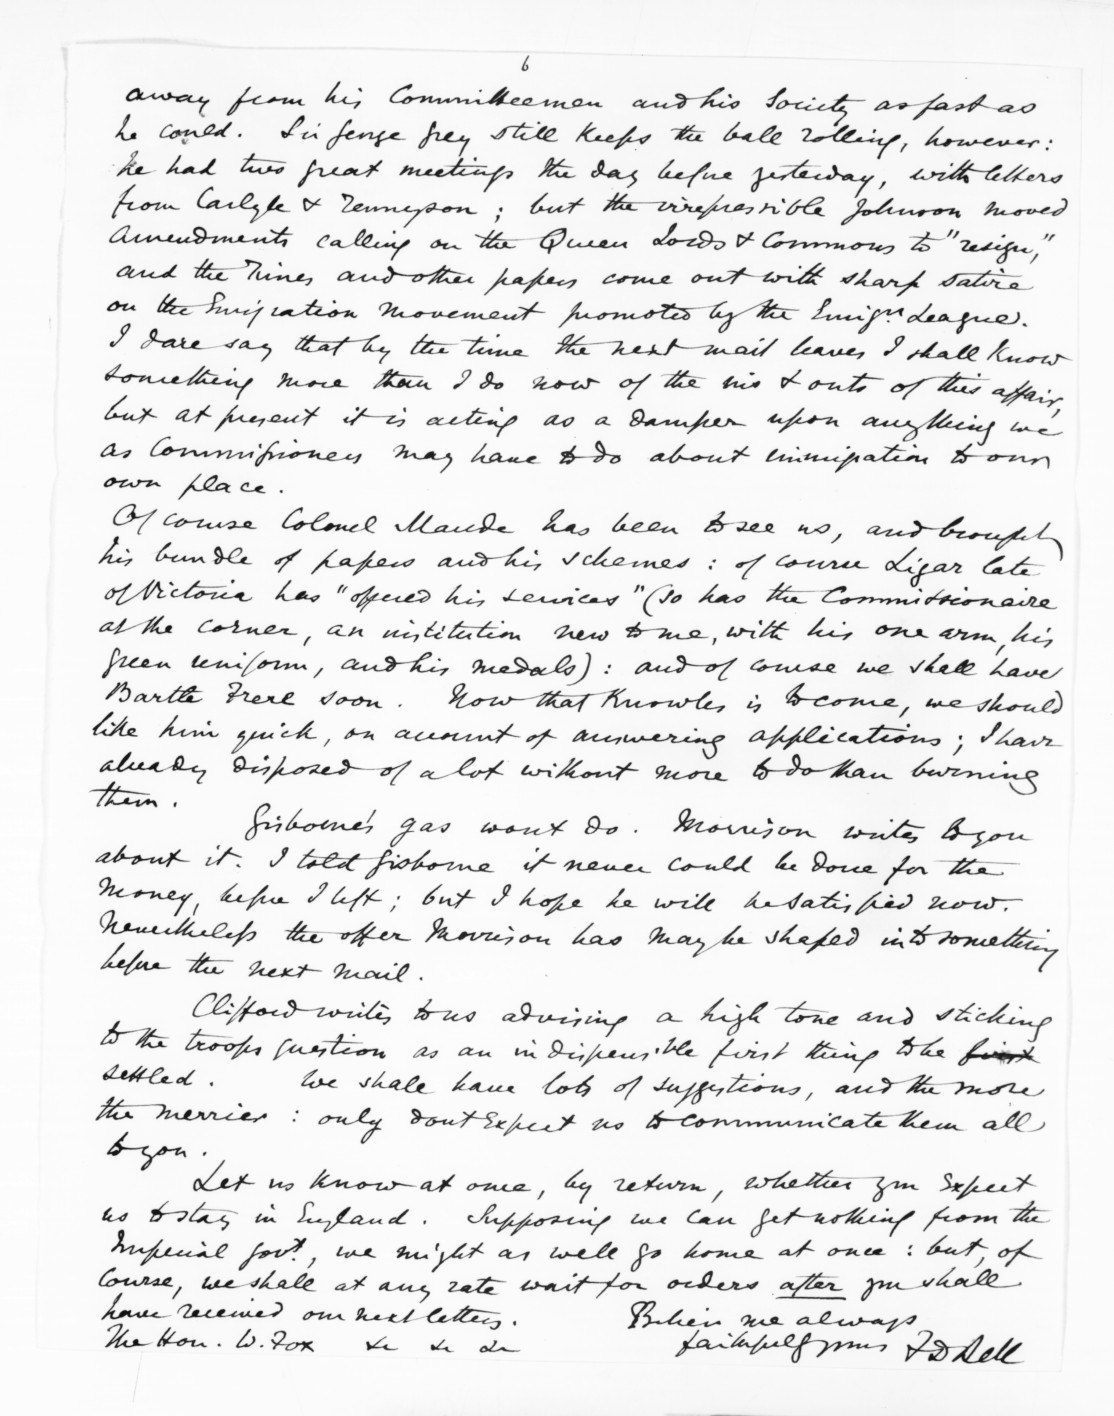 6
away from his Committeemen and his Society as fast as
he could. Sir George Grey still keeps the ball rolling, however:
he had two great meetings the day before yesterday, with letters
from Carlyle & Tennyson; but the irrepressible Johnson moved
amendments calling on the Queen Lords & Commons to "resign,"
and the Times and other papers come out with sharp satire
on the Emigration movement promoted by the Emign. League.
I dare say that by the time the next mail leaves I shall know
something more than I do now of the ins & outs of this affair,
but at present it is acting as a damper upon anything we
as Commissioners may have to do about immigration to our
own place.
Of course Colonel Maude has been to see us, and brought
his bundle of papers and his schemes: of course Ligar late
of Victoria has "offered his services" (so has the Commissionaire
at the corner, an institution new to me, with his one arm, his
green uniform, and his medals): and of course we shall have
Bartle Frere soon. Now that Knowles is to come, we should
like him quick, on account of answering applications; I have
already disposed of a lot without more to do than burning
them.
Gisborne's gas wont do. Morrison writes to you
about it. I told Gisborne it never could be done for the
money, before I left; but I hope he will be satisfied now.
Nevertheless the offer Morrison has may be shaped into something
before the next mail.
Clifford writes to us advising a high tone and sticking
to the troops question as an indispensible first thing to be first
settled. We shall have lots of suggestions, and the more
the merrier: only dont expect us to communicate them all
to you.
Let us know at once, by return, whether you expect
us to stay in England. Supposing we can get nothing from the
Imperial Govt., we might as well go home at once: but, of
course, we shall at any rate wait for orders after you shall
have received our next letters.
Believe me always
faithfully yours F D Bell
The Hon. W. Fox &c &c &c